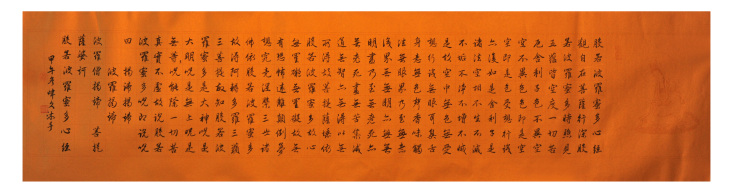 般若波羅蜜多心經
觀自在菩薩行深般
若波羅蜜多時照見
五蘊皆空度一切苦
厄舍利子色不異空
空不異色色即是空
空即是色受想行識
亦復如是舍利子是
諸法空相不生不滅
不垢不淨不增不減
是故空中無色無受
想行識無眼耳鼻舌
身意無色聲香味觸
法無眼界乃至無意
識界無無明亦無無
明盡乃至無老死亦
無老死盡無苦集滅
道無智亦無得以無
所得故菩提薩埵依
般若波羅蜜多故心
無罣礙無罣礙故無
有恐怖遠離顛倒夢
想究竟涅槃三世諸
佛依般若波羅蜜多
故得阿耨多羅三藐
三菩提故知般若波
羅蜜多是大神咒是
大明咒是無上咒是
無等咒能除一切苦
真實不虛故說般若
波羅蜜多咒即說咒
曰 揭諦揭諦
波羅揭諦
波羅僧揭諦 菩提
薩婆訶
般若波羅蜜多心經
甲午年 沐手